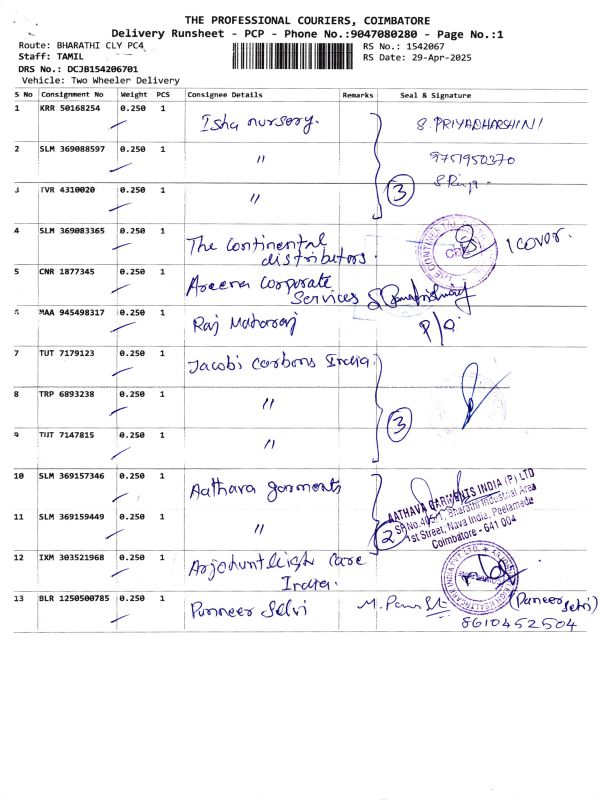 THE PROFESSIONAL COURIERS, COIMBATORE
Delivery Runsheet - PCP - Phone No.:9047080280 - Page No.:1
Route: BHARATHI CLY PC4 RS No.: 1542067
Staff: TAMIL RS Date: 29-Apr-2025
DRS No.: DCJB154206701
Vehicle: Two Wheeler Delivery
S No Consignment No Weight PCS Consignee Details Remarks Seal & Signature
1 KRR 50168254 0.250 1 Isha nursory. S. PRIYADHARSHINI
2 SLM 369088597 0.250 1 〃 9751950370
3 TVR 4310020 0.250 1 〃 3 S. Priya
4 SLM 369083365 0.250 1 The continental distributors. 1 cover.
5 CNR 1877345 0.250 1 Areena Corporate Services
6 MAA 945498317 0.250 1 Raj Maharaj P/O
7 TUT 7179123 0.250 1 Jacobi carbons India.
8 TRP 6893238 0.250 1 〃
9 TUT 7147815 0.250 1 〃 3
10 SLM 369157346 0.250 1 Aathava garments
AATHAVA GARMENTS INDIA (P) LTD
11 SLM 369159449 0.250 1 〃 2
Bharathi Industrial Area
1st Street, Nava India, Peelamedu
Coimbatore - 641 004
12 IXM 303521968 0.250 1 Arjohuntleigh Care India.
13 BLR 1250500785 0.250 1 Panneer Selvi (Paneer Selvi)
8610452504